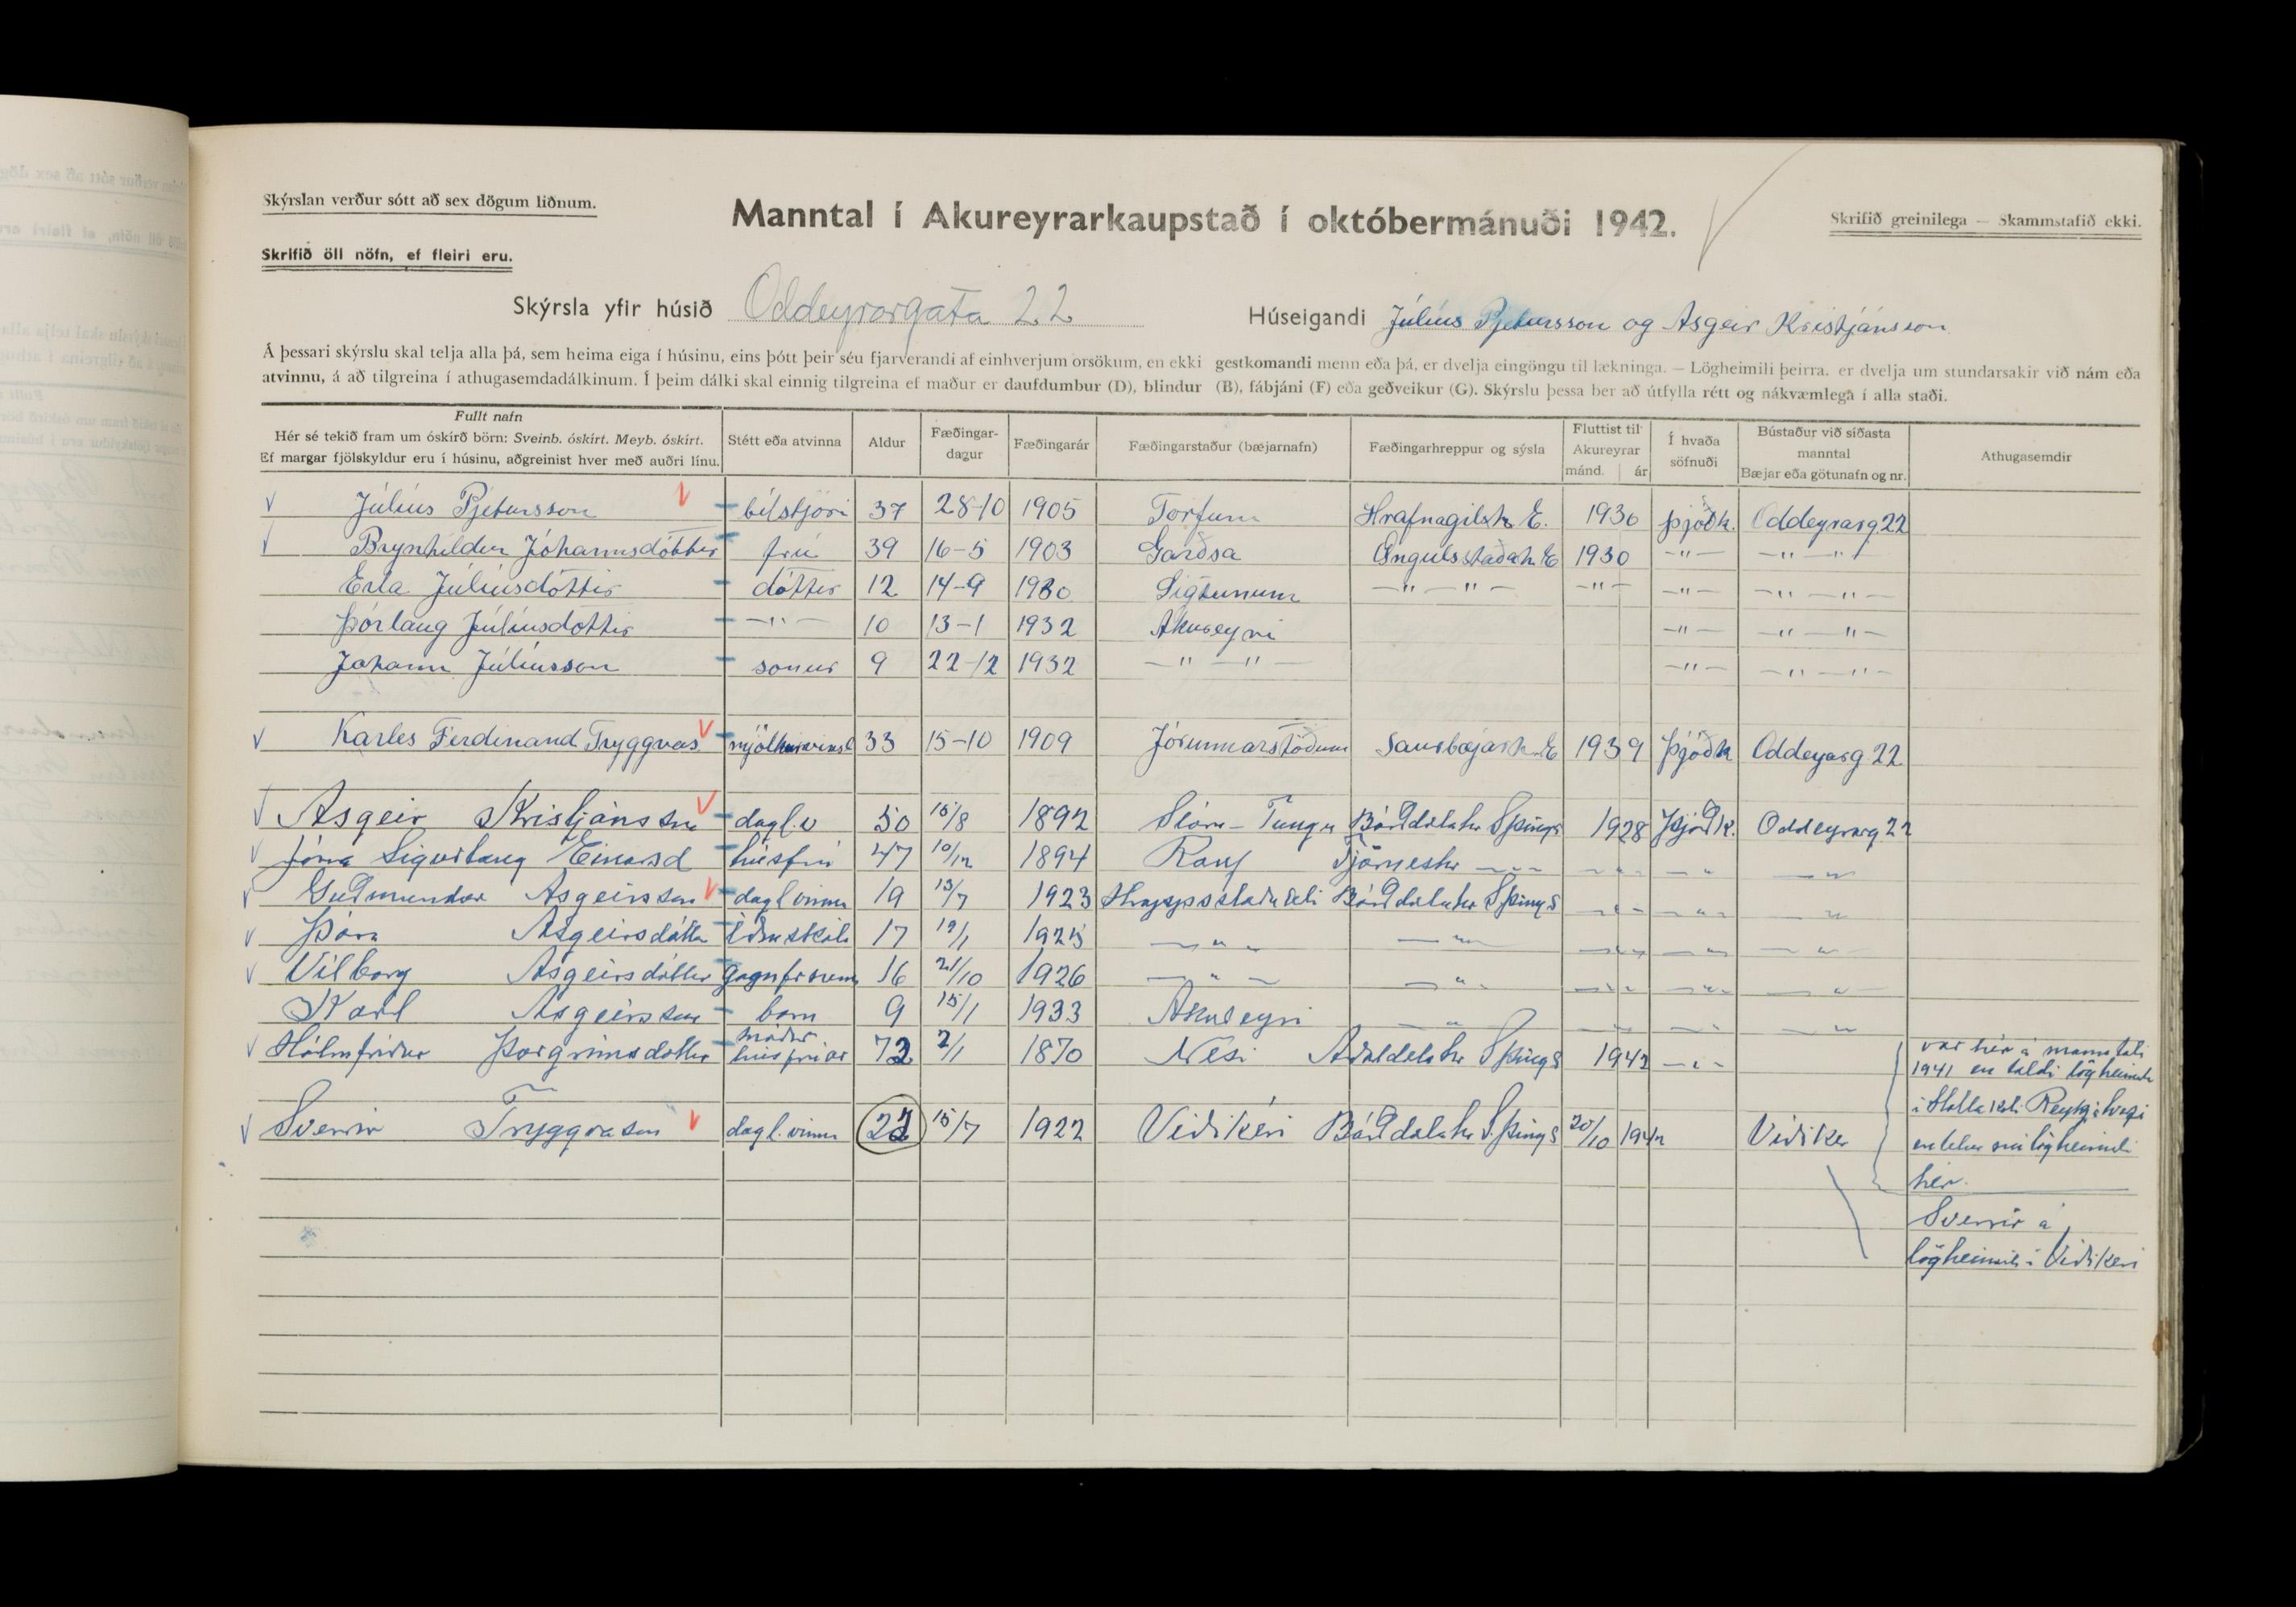 Skýrslan verður sótt að sex dögum liðnum.
Manntal í Akureyrarkaupstað í októbermánuði 1942.
Skrifið greinilega — Skammstafið ekki.
Skrifið öll nöfn, ef fleiri eru.
Skýrsla yfir húsið Oddeyrargata 22
Húseigandi Júlíus Pjetursson og Asgeir Kristjánsson
Á þessari skýrslu skal telja alla þá, sem heima eiga í húsinu, eins þótt þeir séu fjarverandi af einhverjum orsökum, en ekki gestkomandi menn eða þá, er dvelja eingöngu til lækninga. — Lögheimili þeirra, er dvelja um stundarsakir við nám eða
atvinnu, á að tilgreina í athugasemdadálkinum. Í þeim dálki skal einnig tilgreina ef maður er daufdumbur (D), blindur (B), fábjáni (F) eða geðveikur (G). Skýrslu þessa ber að útfylla rétt og nákvæmlega í alla staði.
Fullt nafn
Hér sé tekið fram um óskírð börn: Sveinb. óskírt. Meyb. óskírt.
Ef margar fjölskyldur eru í húsinu, aðgreinist hver með auðri línu.
Stétt eða atvinna
Aldur
Fæðingar-
dagur
Fæðingarár
Fæðingarstaður (bæjarnafn)
Fæðingarhreppur og sýsla
Fluttist til
Akureyrar
mánd. ár
Í hvaða
söfnuði
Bústaður við síðasta
manntal
Bæjar eða götunafn og nr.
Athugasemdir
Júlíus Pjetursson bílstjóri 37 28-10 1905 Torfum Hrafnagilsh E. 1930 þjóðk. Oddeyrarg 22
Brynhildur Jóhannsdóttir frú 39 16-5 1903 Garðsa Öngulsstaðah. E 1930 -"- -"- -"-
Erla Júlíusdóttir dóttir 12 14-9 1930 Sigtunum -"- -"- -"- -"- -"- -"-
Þórlaug Júlíusdóttir -"- 10 13-1 1932 Akureyri -"- -"- -"-
Johann Júlíusson sonur 9 22-12 1932 -"- -"- -"- -"- -"-
Karles Ferdinand Tryggvas 33 15-10 1909 Jórunnarstöðum Saurbæjarh. E 1939 Þjóðk Oddeyarg 22
Asgeir Kristjánsson dagl.v 50 15/8 1892 Stóru-Tungu Bárðdalahr S Þings 1928 Þjóðk. Oddeyrarg 22
Jóna Sigurlaug Einarsd húsfrú 47 10/12 1894 Rauf Tjörneshr -"- -"- -"- -"-
Guðmundur Asgeirsson dagl.vinna 19 13/7 1923 Hrappsstaðaseli Bárðdalahr S Þings -"- -"- -"-
Þóra Asgeirsdóttir Iðnskóli 17 19/1 1925 -"- -"- -"- -"- -"-
Vilborg Asgeirsdóttir 16 21/10 1926 -"- -"- -"- -"- -"-
Karl Asgeirsson barn 9 15/1 1933 Akureyri -"- -"- -"- -"-
Hólmfríður Þorgrímsdóttir móðir húsfrúar 72 2/1 1870 Nesi Aðaldalahr S Þings 1942 -"-
Sverrir Tryggvason dagl.vinna 22 15/7 1922 Viðikeri Bárðdalahr S.Þings 20/10 1942 Viðiker
var hér á manntali
1941 en taldi lögheimili
í Hallakoti Reykjahverfi
en telur nú lögheimili
hér.
Sverrir á
lögheimili í Viðikeri